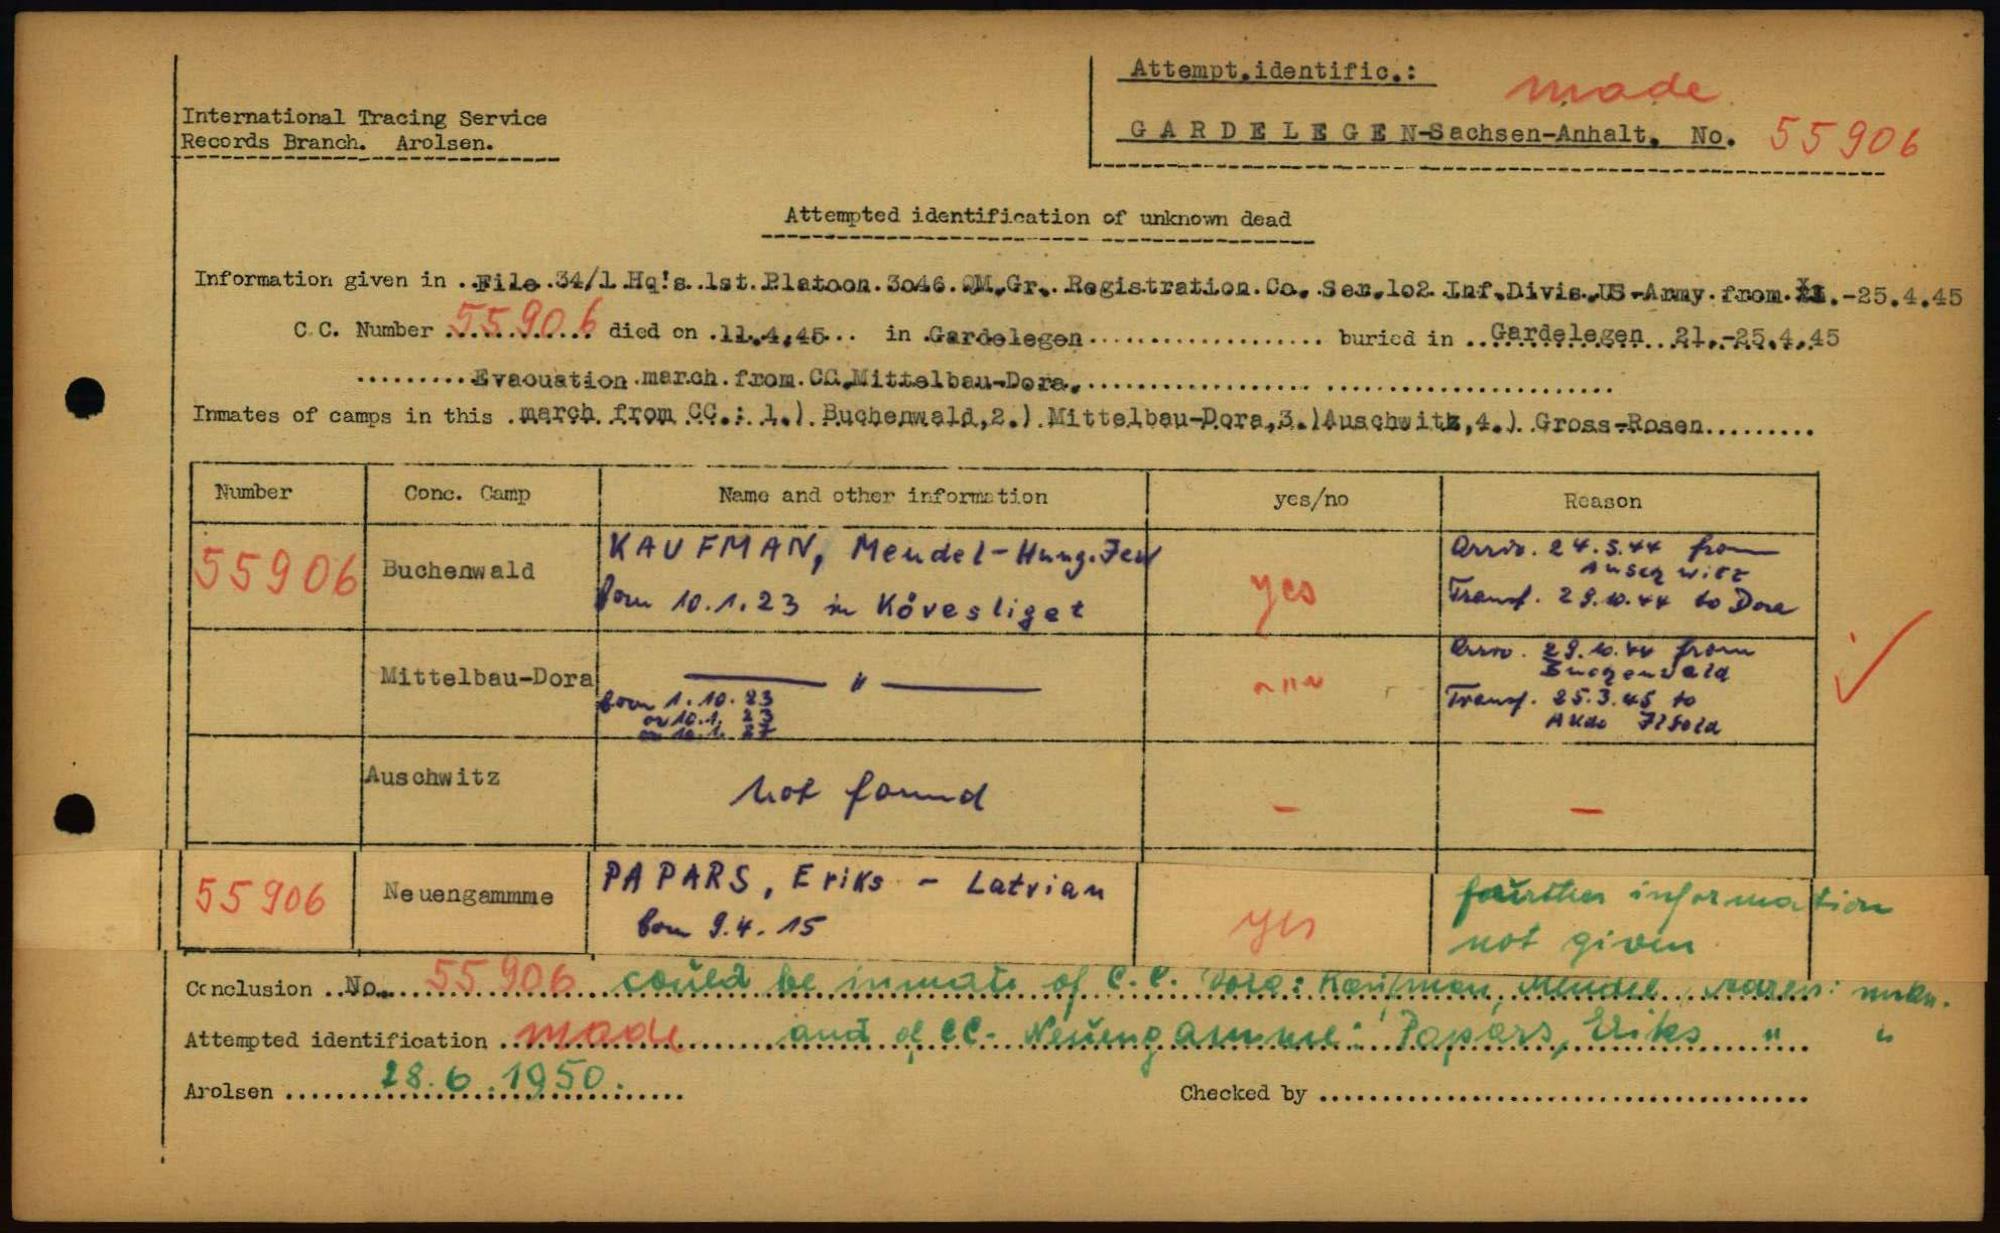 Attempt.identific.:
made
International Tracing Service
Records Branch. Arolsen.
GARDELEGEN-Sachsen-Anhalt. No. 55906
Attempted identification of unknown dead
Information given in ..File.34/1.Hq's.1st.Platoon.3o46.QM.Gr..Registration.Co..Ser.1o2.Inf.Divis.US-Army.from. .-25.4.45
C.C. Number 55906 died on .11.4.45... in .Gardelegen................... buried in ..Gardelegen..21.-25.4.45
.........Evacuation.march.from.CC.Mittelbau-Dora.........................................
Inmates of camps in this .march.from.CC.: 1.).Buchenwald,2.).Mittelbau-Dora,3.)Auschwitz,4.).Gross-Rosen.........
Number Conc. Camp Name and other information yes/no Reason
55906 Buchenwald KAUFMAN, Mendel - Hung. Jew
born 10.1.23 in Kövesliget
yes
Arriv. 24.5.44 from
Auschwitz
Transf. 29.10.44 to Dora
Mittelbau-Dora — " —
born 1.10.23
or 10.1.23
or 10.1.27
~"~
Arriv. 29.10.44 from
Buchenwald
Transf. 25.3.45 to
Akdo Ilfeld
Auschwitz not found - -
55906 Neuengammme PAPARS, Eriks - Latvian
born 9.4.15
yes
fourther information
not given
Conclusion ..No... 55906 could be inmate of C.C. Dora: Kaufman, Mendel, unkn.
Attempted identification made and of CC- Neuengamme: Papars, Eriks " "
Arolsen 28.6.1950. Checked by .......................................